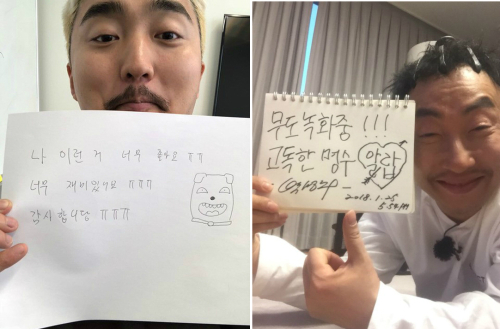 나 이런 거 너무 좋아요 ㅠㅠ
너무 재미있어요 ㅠㅠㅠ
감사합니답 ㅠㅠㅠ
무도 녹화중 !!!
고독한 명수 알랍
2018.1.25
5:54